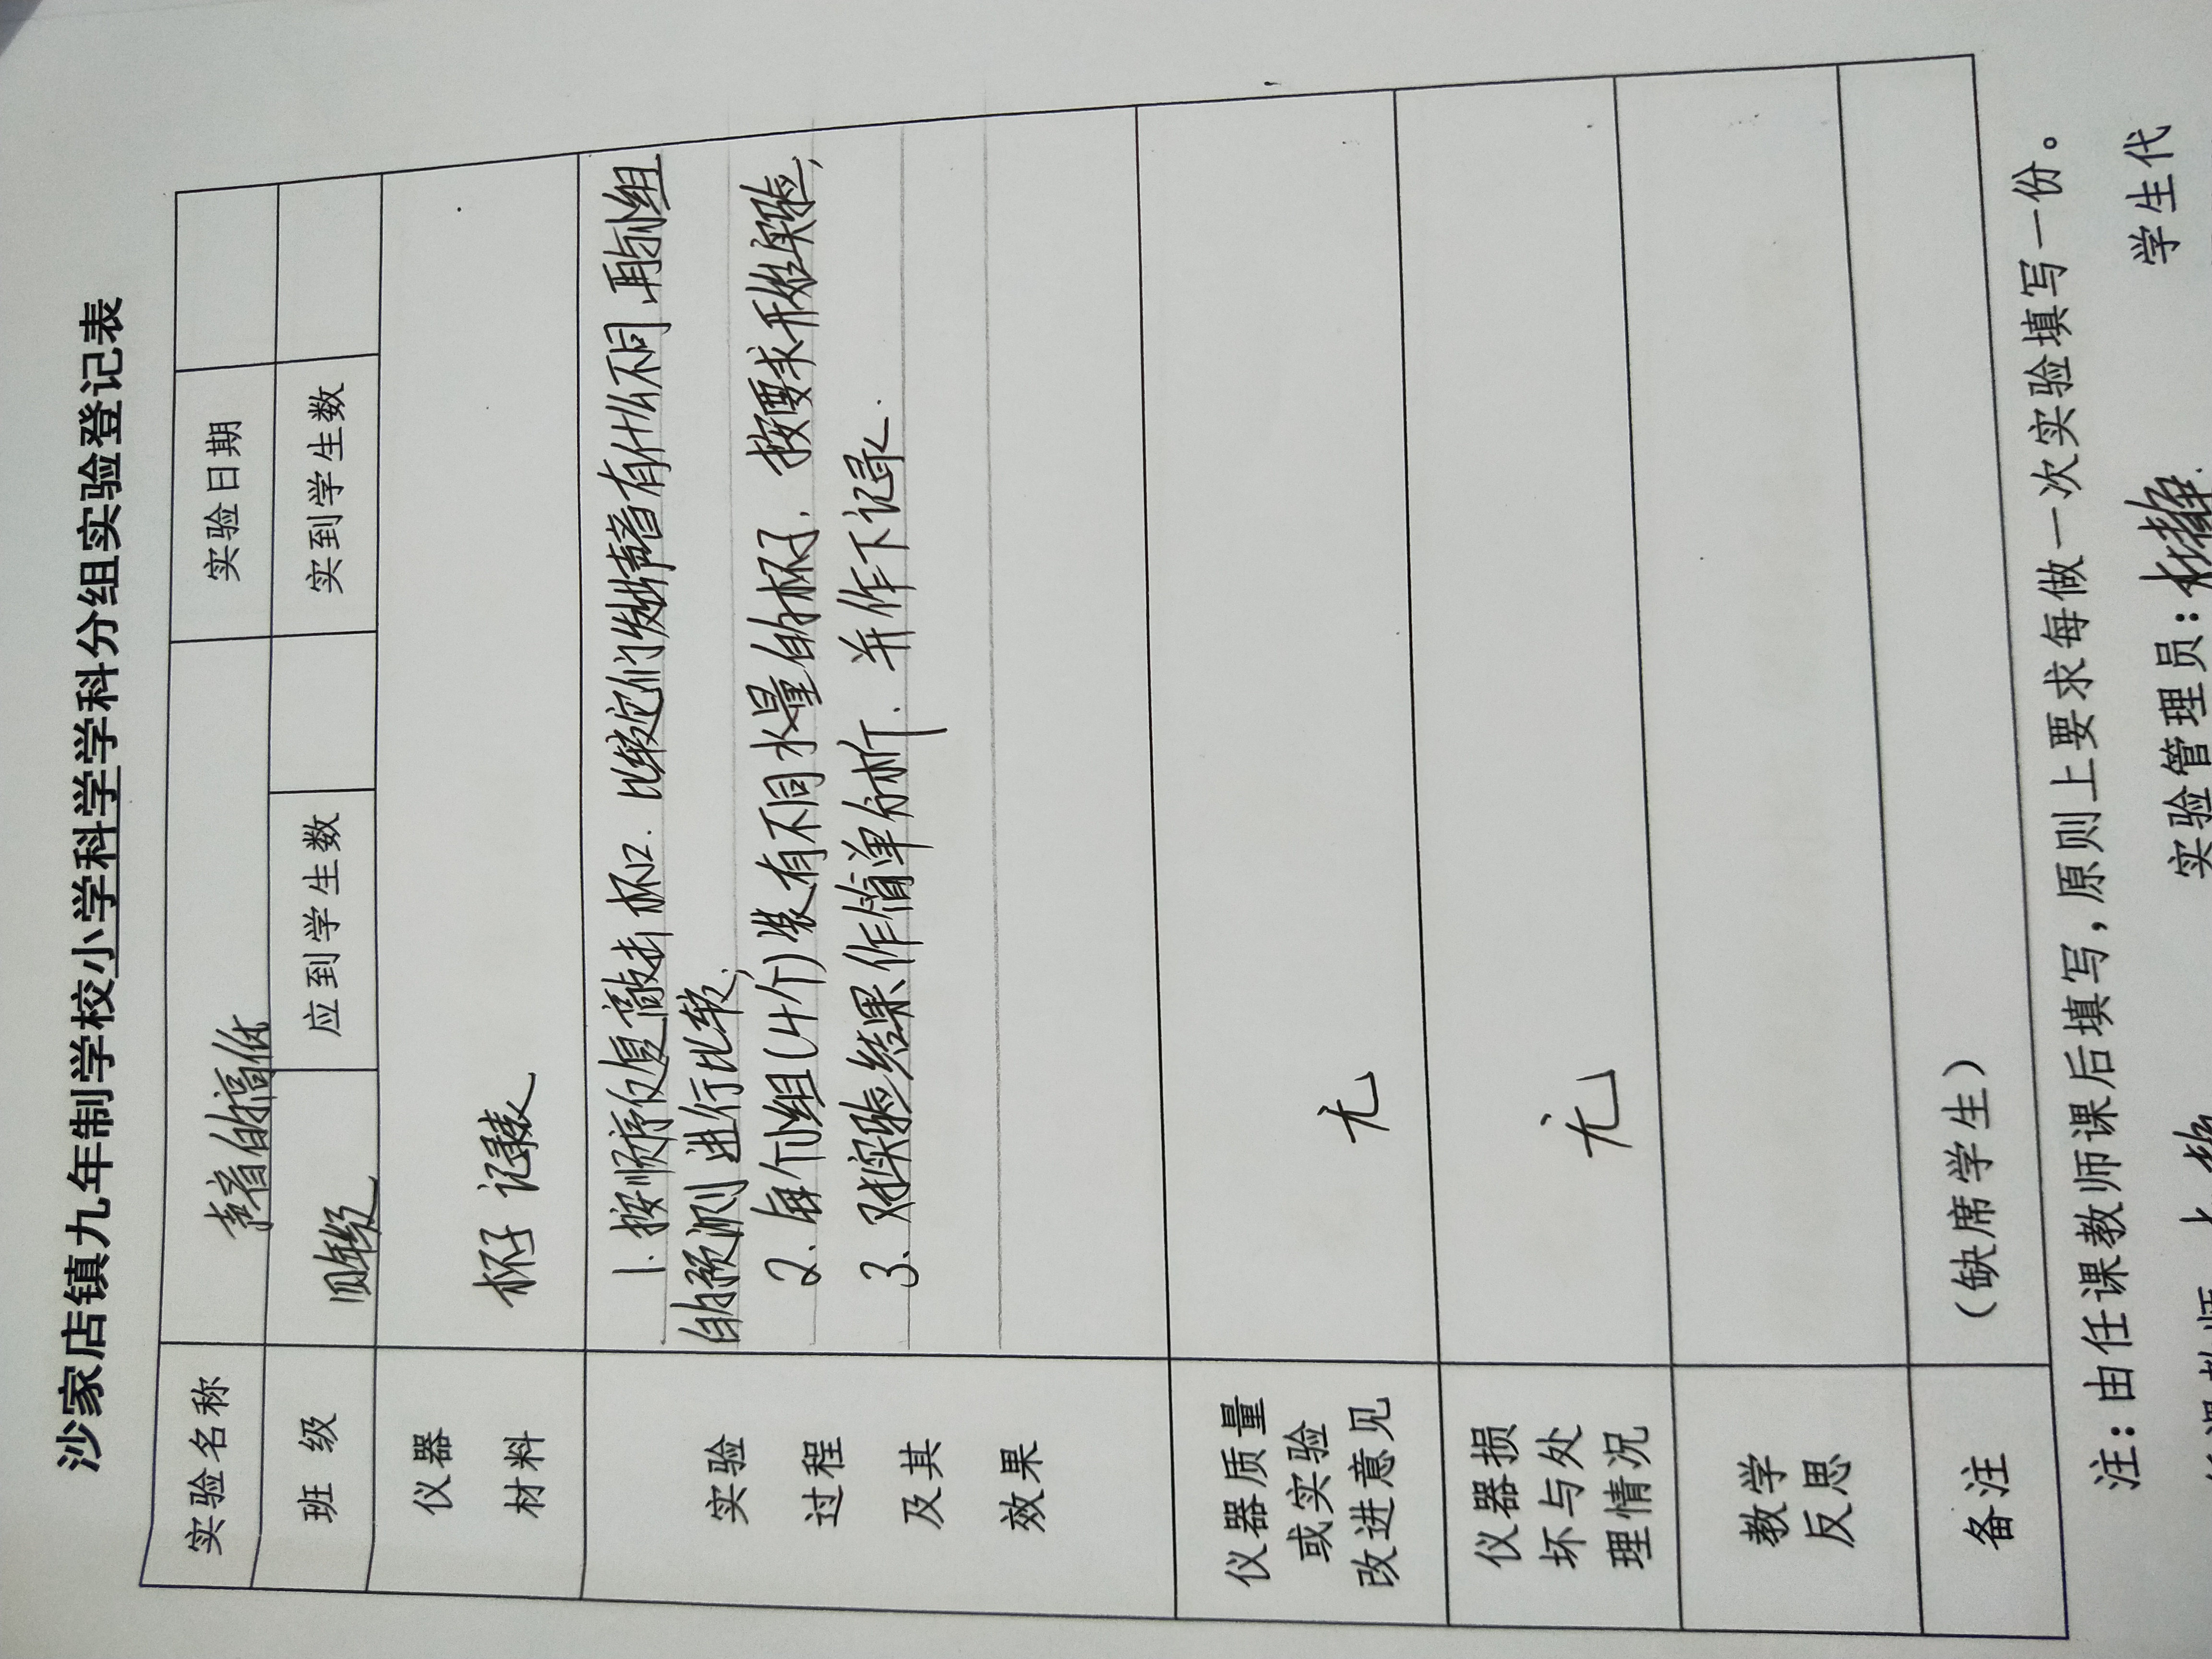 沙家店镇九年制学校小学科学学科分组实验登记表
实验名称 声音的高低 实验日期
班 级 四年级 应到学生数 实到学生数
仪器
材料
杯子 记录表
实验
过程
及其
效果
1. 按顺序反复敲击杯口. 比较它们发出声音有什么不同.再和小组
的预测进行比较,
2. 每个小组(4个)装有不同水量的杯子. 按要求开始实验,
3. 对实验结果作简单分析. 并作下记录.
仪器质量
或实验
改进意见
无
仪器损
坏与处
理情况
无
教学
反思
备注 (缺席学生)
注:由任课教师课后填写,原则上要求每做一次实验填写一份。
实验管理员: 学生代